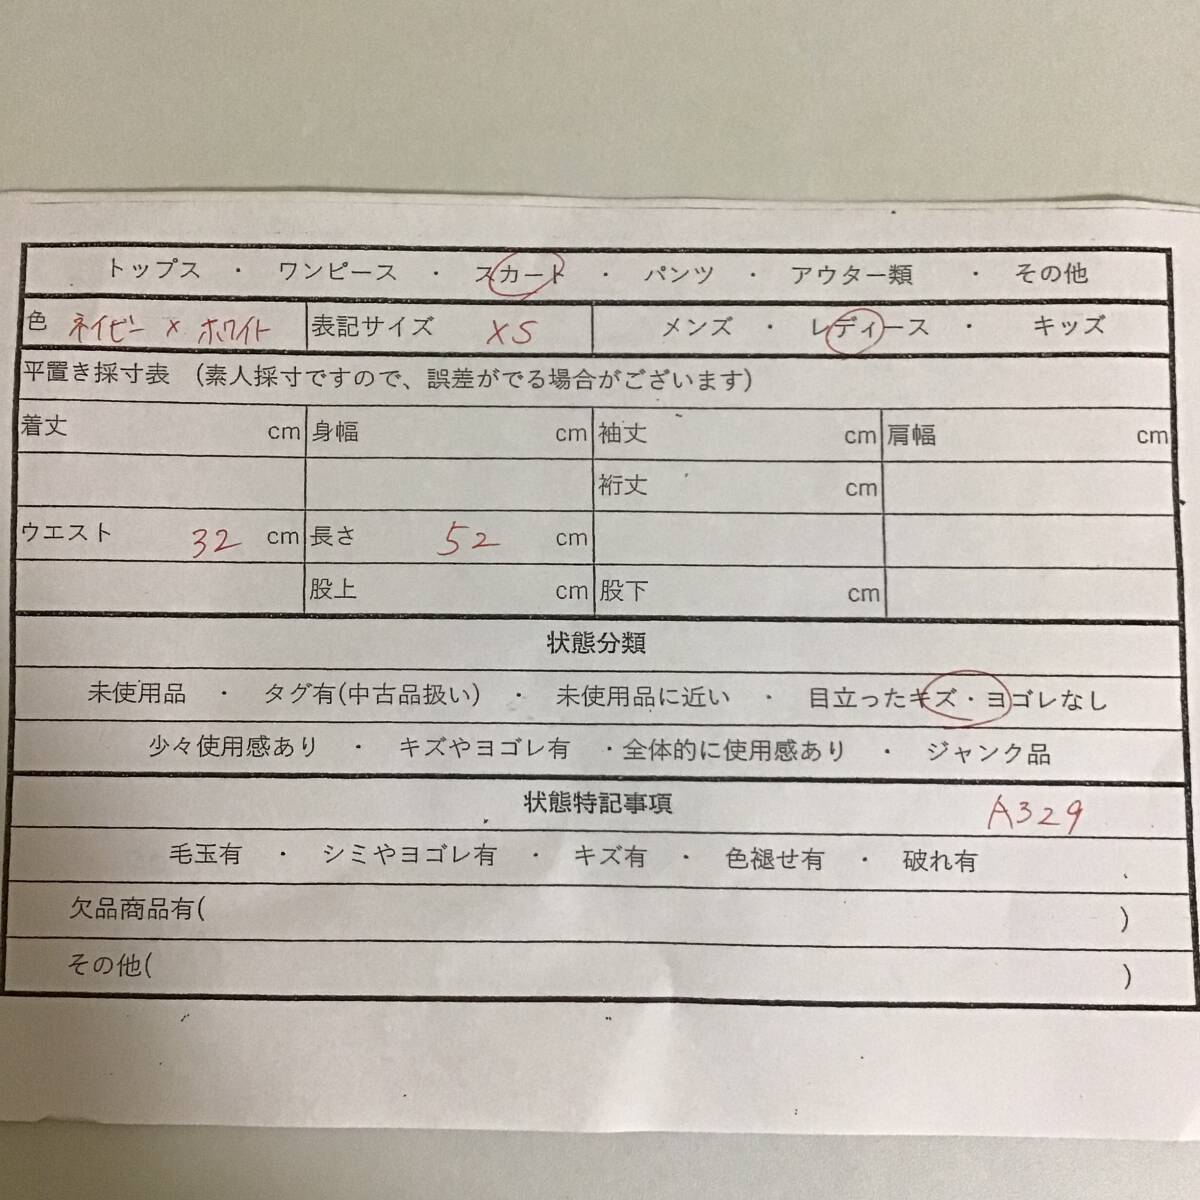 トップス ・ ワンピース ・ スカート ・ パンツ ・ アウター類 ・ その他
色 ネイビー × ホワイト 表記サイズ XS メンズ ・ レディース ・ キッズ
平置き採寸表 (素人採寸ですので、誤差がでる場合がございます)
着丈 cm 身幅 cm 袖丈 cm 肩幅 cm
裄丈 cm
ウエスト 32 cm 長さ 52 cm
股上 cm 股下 cm
状態分類
未使用品 ・ タグ有(中古品扱い) ・ 未使用品に近い ・ 目立ったキズ・ヨゴレなし
少々使用感あり ・ キズやヨゴレ有 ・全体的に使用感あり ・ ジャンク品
状態特記事項 A329
毛玉有 ・ シミやヨゴレ有 ・ キズ有 ・ 色褪せ有 ・ 破れ有
欠品商品有( )
その他( )